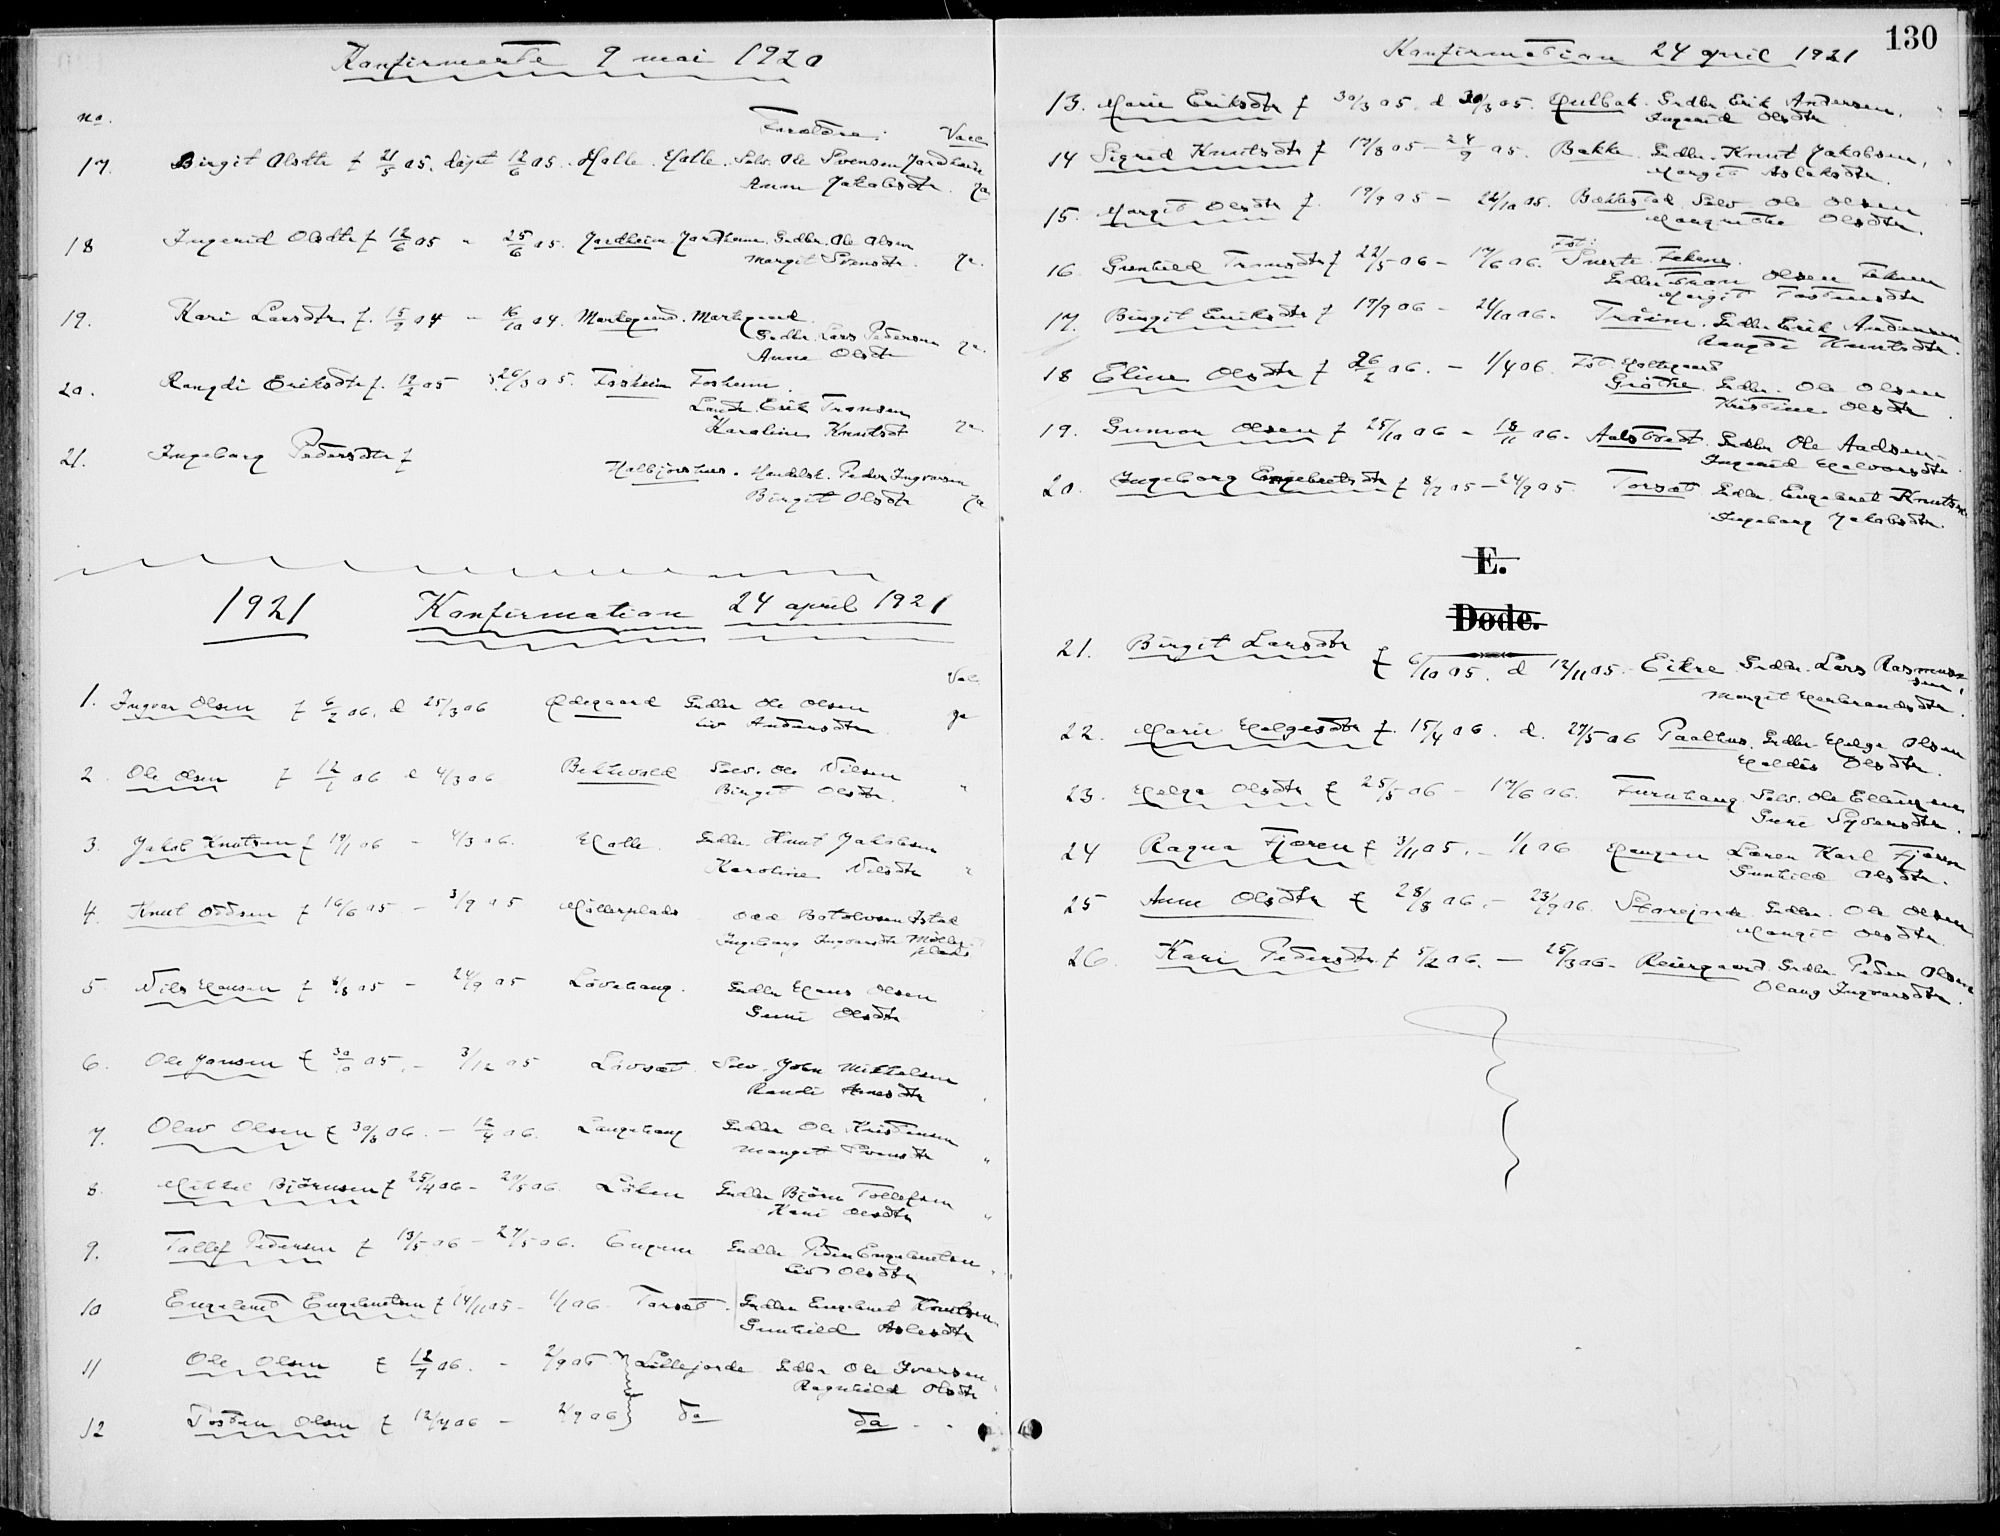 Konfirmerte 9 mai 1920
no.
Foreldre. Vacc.
17. Birgit Olsdtr f 21/5 05. döpt 12/6 05. Halle. Halle. Selv. Ole Svensen Jordheim
Anne Jakobsdtr. ja
18 Ingerid Olsdtr f 12/6 05 - 25/6 05. Jordheim. Jordheim. Grdbr. Ole Olsen
Margit Svensdtr. ja.
19. Kari Larsdtr. f. 15/9 04 - 16/10 04. Markegard. Markegard.
Grdbr. Lars Pedersen ja.
Anne Olsdtr
20. Rangdi Eriksdtr f. 12/2 05 26/3 05. Fosheim Fosheim.
Landh. Erik Tronsen
Karoline Knutsdt ja
21. Ingeborg Pedersdtr f
Halbjorshus. Handelsb. Peder Ingvarsen
Birgit Olsdtr ja
1921 Konfirmation 24 april 1921
Vac.
1. Ingvar Olsen f 6/2 06. d 25/3 06 Ödegaard Grdbr Ole Olsen
Liv Andersdtr. ja
2. Ole Olsen f 12/1 06 d 4/3 06 Bekkevold Selv. Ole Nilsen
Birgit Olsdtr. "
3. Jakob Knutsen f 19/1 06 - 4/3 06. Halle. Grdbr. Knut Jakobsen
Karoline Nilsdtr "
4. Knut Oddsen f 16/6 05 - 3/9 05 Möllerplads Odd Botolvsen Istad
Ingeborg Ingvarsdtr Möller
plads
5 Nils Hansen f 8/8 05 - 24/9 05 Lövehaug. Grdbr Hans Olsen
Guri Olsdtr
6. Ole Jonsen f 30/10 05. - 3/12 05 Lövset Selv. John Mikkelsen
Randi Arnesdtr
7. Olav Olsen f 30/3 06. - 16/4 06. Langehaug Grdbr Ole Kristensen
Margit Svensdtr "
8. Mikkel Björnsen f 25/4 06 - 20/5 06. Löken Grdbr Björn Tollefsen
Kari Olsdtr "
9. Tollef Pedersen f 13/5 06 - 27/5 06. Grdbr Peder Engebretsen
Liv Olsdtr
10 Engebret Engebretsen f 14/11 05 - 1/1 06 - Torset. Grdbr Engebret Knutsen
Gunhild Aslesdtr
11 Ole Olsen f 12/7 06. - 2/9 06 Lillejorde Grdbr Ole Iversen
Ragnhild Olsdtr
12 Tosten Olsen f 12/7 06 - 2/9 06 do do - -
130
Konfirmation 24 april 1921
13. Marie Eriksdtr f 30/3 05. d 30/3 05. Hulbak. Grdbr. Erik Andersen,
Ingerid Olsdtr
14 Sigrid Knutsdtr f 17/8 05 - 24/9 05. Bakke. Grdbr. Knut Jakobsen,
Margit Aslaksdtr.
15. Margit Olsdtr f. 19/9 05 - 22/10 05. Bekkestad. Selv Ole Olsen
Margrethe Olsdtr.
16. Gunhild Tronsdtr f 22/5 06 - 17/6 06. Fst: Snerte. Fekene.
Grdbr Tron Olsen Feken
Margit Tostensdtr
17. Birgit Eriksdtr f 17/9 06 - 21/10 06. Tröim. Grdbr. Erik Andersen
Rangdi Knutsdtr.
18 Eline Olsdtr f 26/2 06. - 1/4 06. Fst Holtegaard
Gröthe. Grdbr. Ole Olsen
Kristine Olsdtr
19. Gunvor Olsen f 25/10 06 - 18/11 06. Aalstvedt. Grdbr Ole Aadsen.
Ingerid Halvorsdtr
20. Ingeborg Engebretsdtr f 8/7 05 - 24/9 05. Torset Grdbr. Engebret Knutsen
Ingeborg Jakobsdtr.
E.
Døde.
21. Birgit Larsdtr f 6/10 05. d 12/11 05. Eikre Grdbr. Lars Rasmus-
sen,
Margit Herbrandsdtr.
22. Marie Helgesdtr f. 15/4 06. d. 27/5 06 Paalhus. Grdbr Helge Olsen
Haldis Olsdtr.
23. Helga Olsdtr f 25/5 06 - 17/6 06. Furuhaug Selv. Ole Ellingsen
Guri Syversdtr.
24 Ragna Fjøren f 3/11 05. - 1/1 06 Haugen Lærer Karl Fjøren
Gunhild Olsdtr.
25 Anne Olsdtr f 28/8 06. - 23/9 06. Storejorde Grdbr. Ole Olsen
Margit Olsdtr.
26. Kari Pedersdtr f 5/2 06. - 25/3 06. Reiergaard Grdbr. Peder Olsen
Olaug Ingvarsdtr.